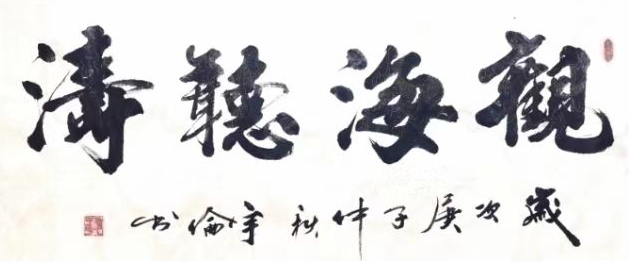 觀海聽濤
歲次庚子仲秋宇倫书